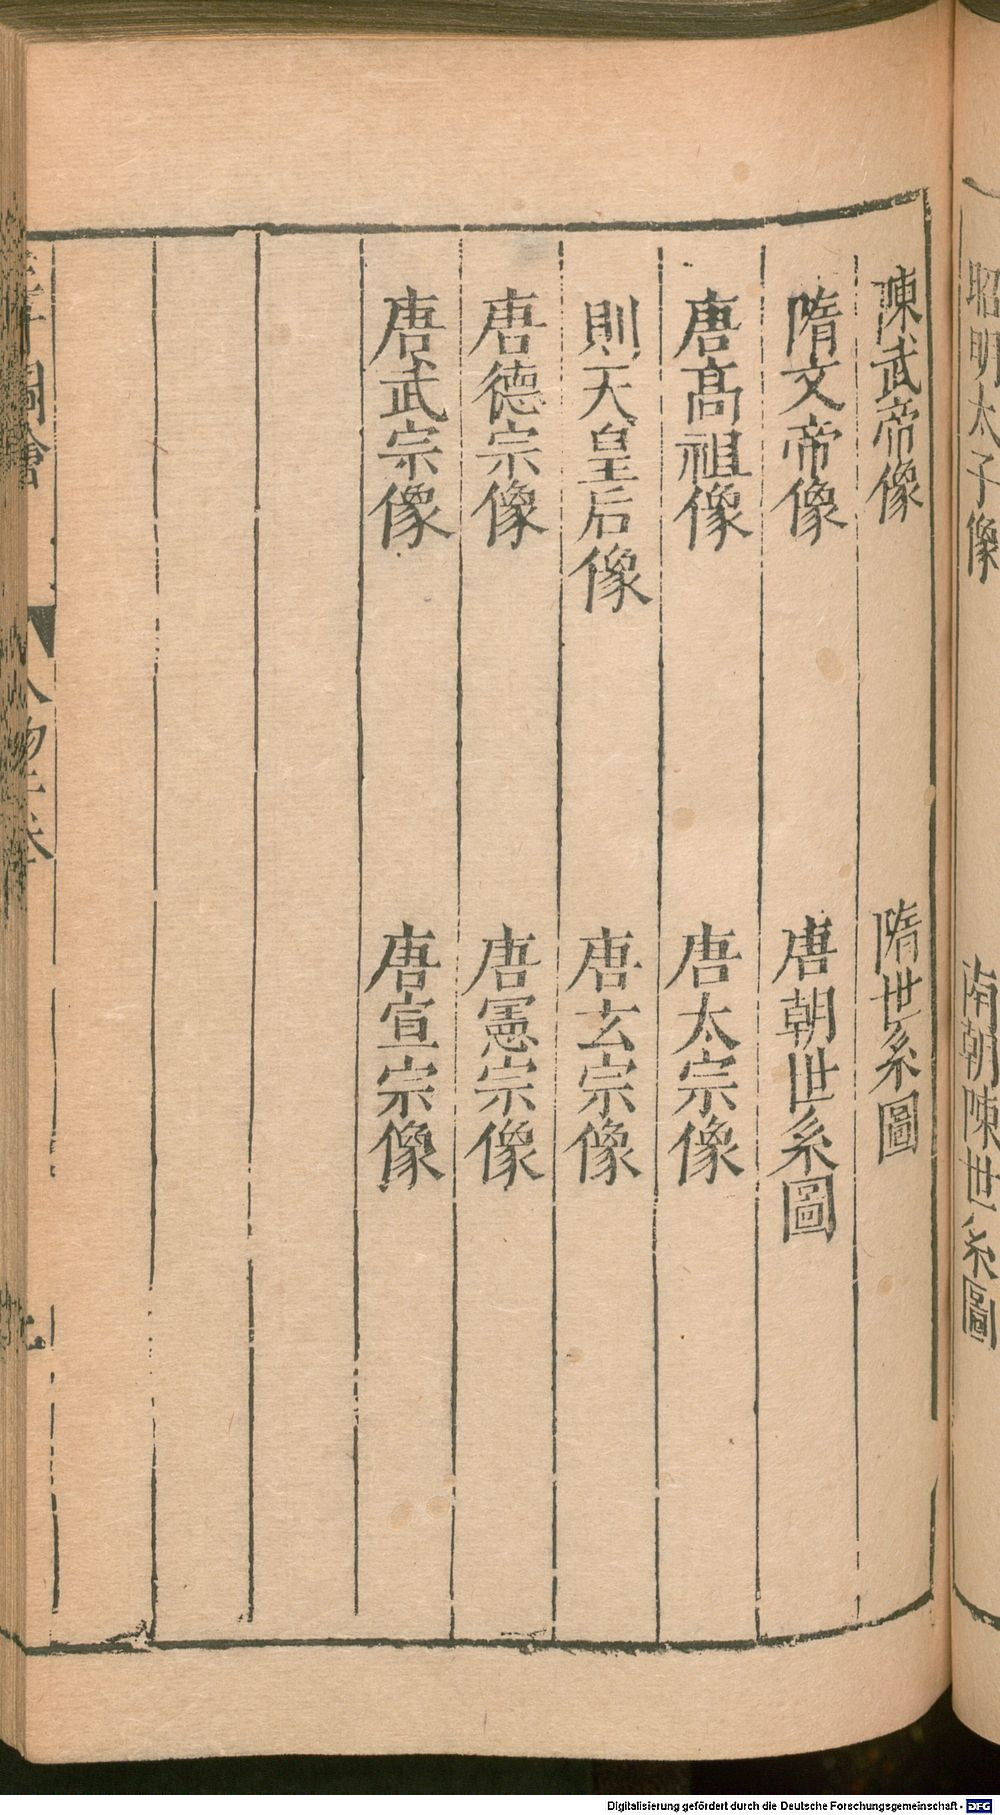 昭明太子像 南朝陳世系圖
陳武帝像 隋世系圖
隋文帝像 唐朝世系圖
唐髙祖像 唐太宗像
則天皇后像 唐玄宗像
唐德宗像 唐憲宗像
唐武宗像 唐宣宗像
圖會 人物
Digitalisierung gefördert durch die Deutsche Forschungsgemeinschaft - DFG